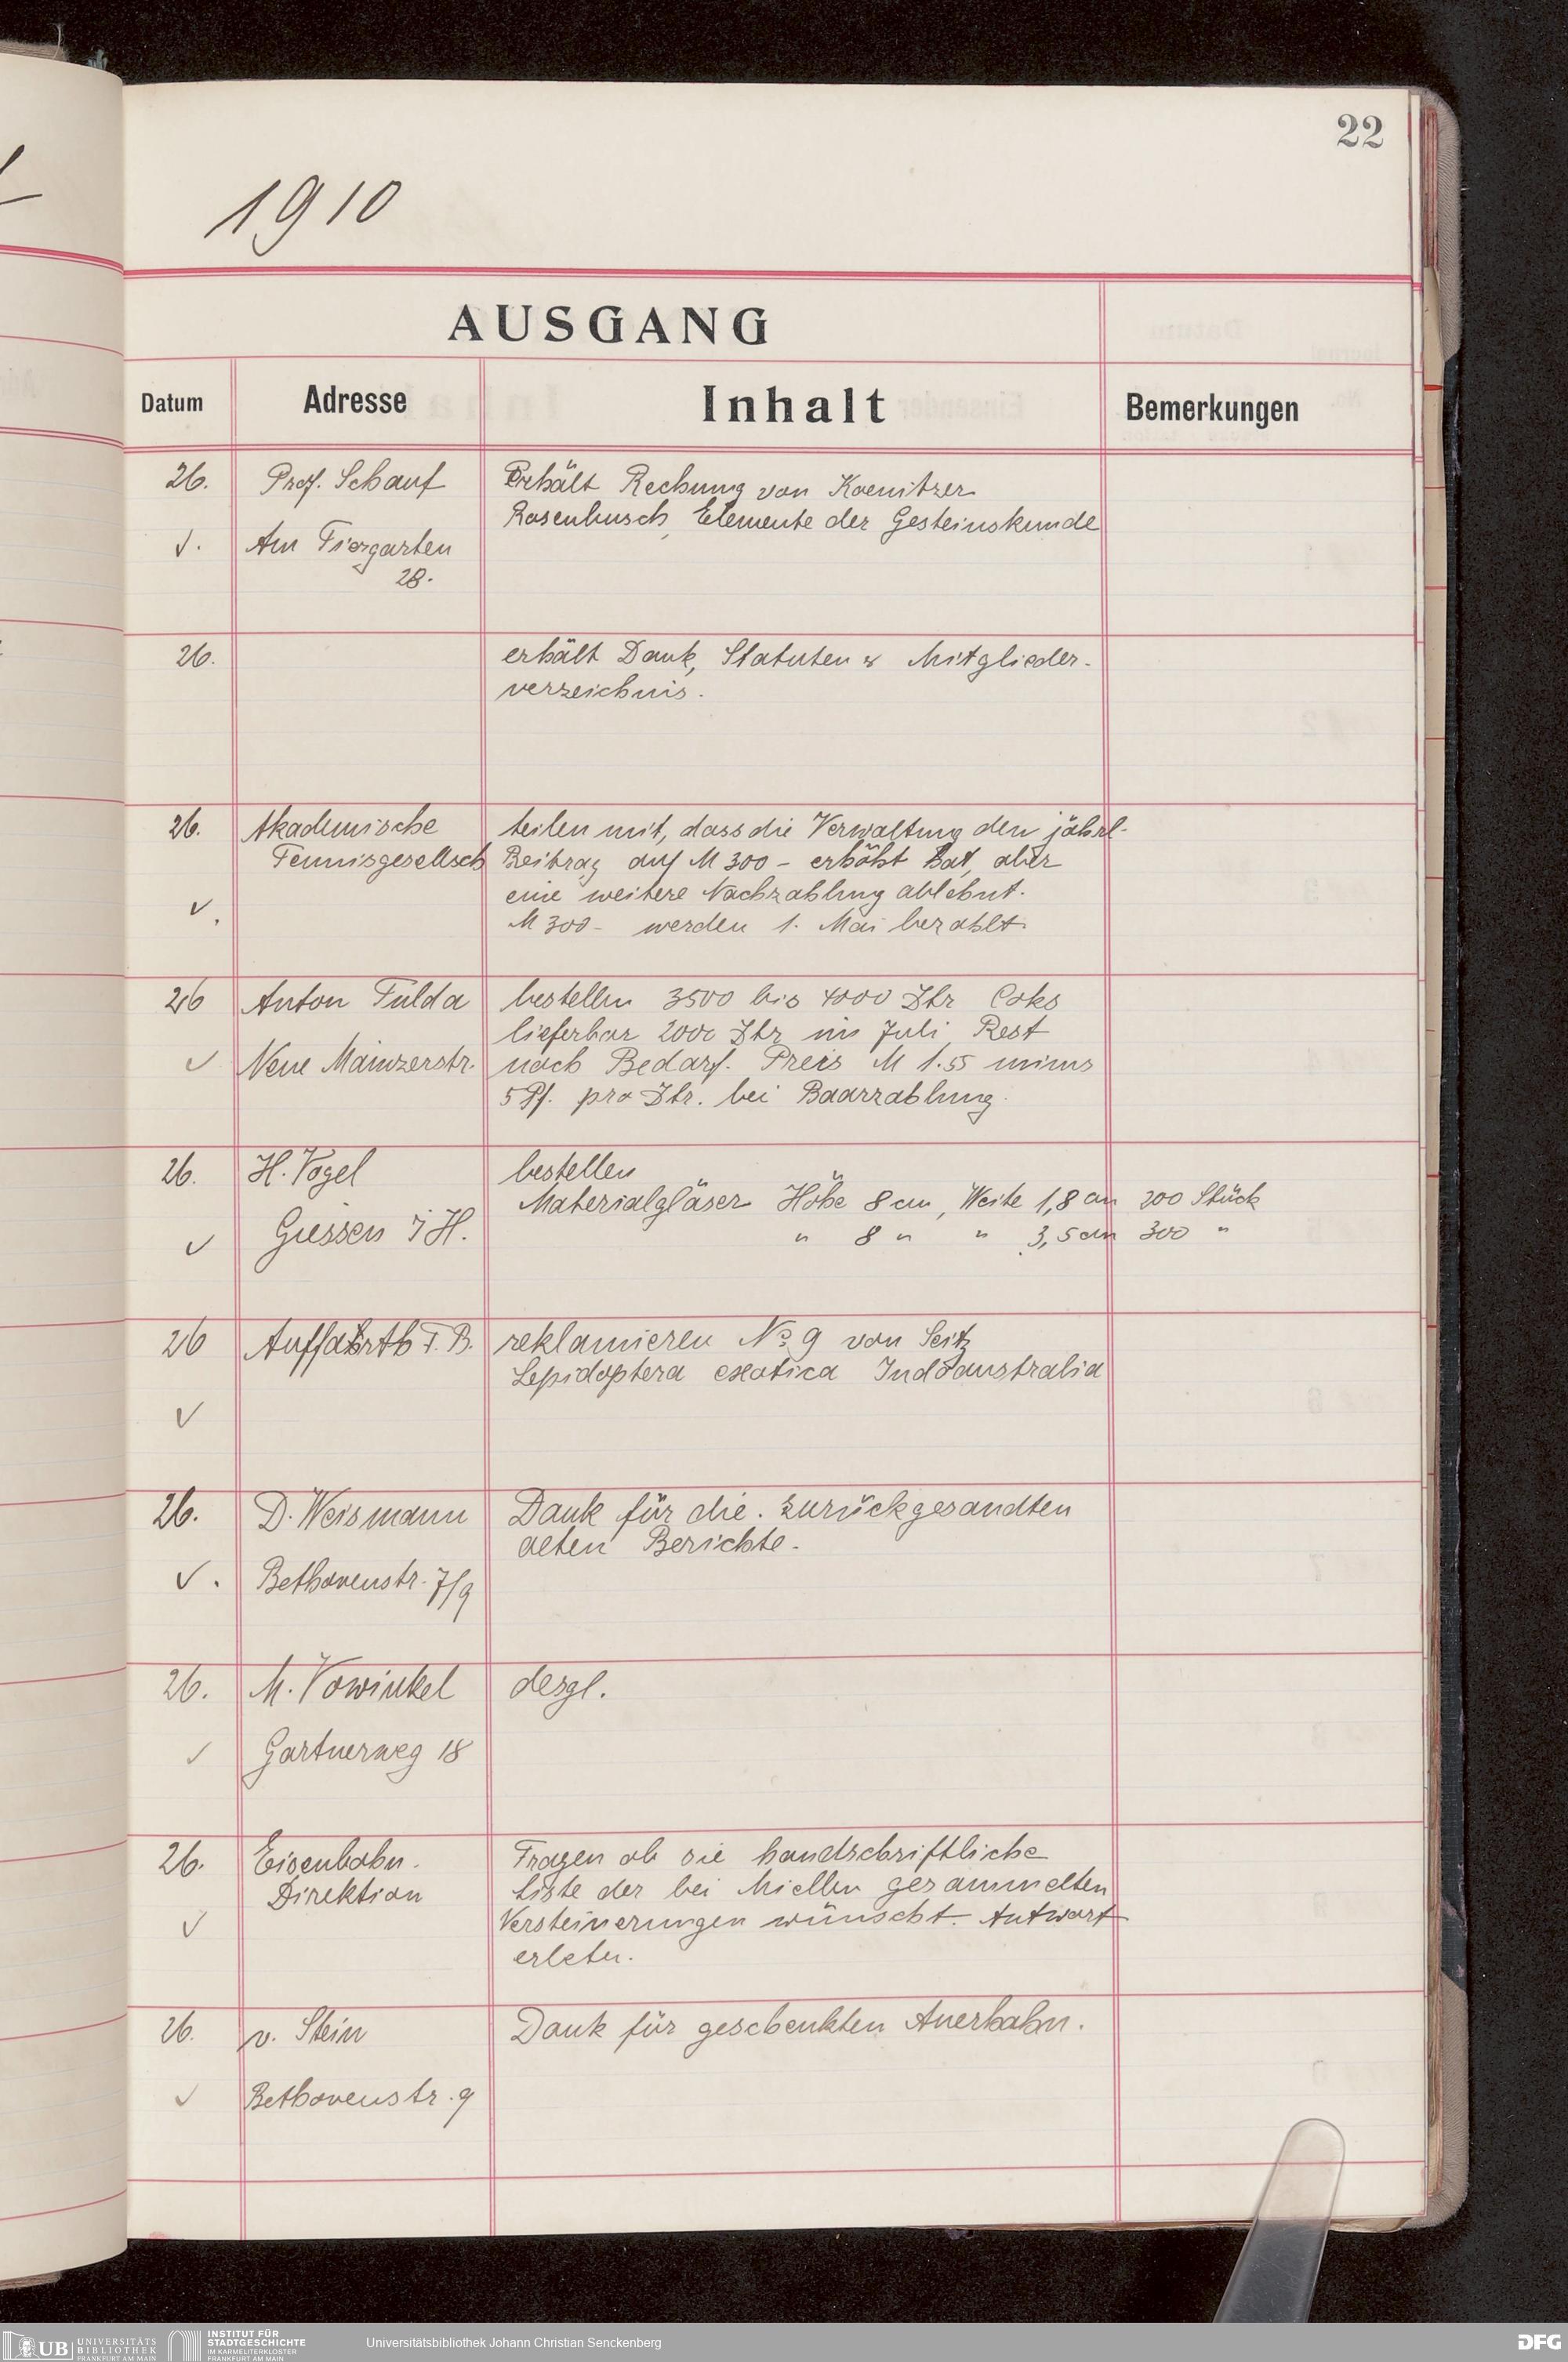 22
1910
AUSGANG
Datum Adresse Inhalt Bemerkungen
26. Prof. Schauf Erhält Rechnung von Koenitzer
Rosenbusch, Elemente der Gesteinskunde
√. Am Tiergarten
28.
26. erhält Dank, Statuten & Mitglieder-
verzeichnis.
26. Akademische teilen mit, dass die Verwaltung den jährl.
Tennisgesellsch Beitrag auf M 300 - erhöht hat, aber
√. eine weitere Nachzahlung ablehnt.
M 300 - werden 1. Mai bezahlt.
26 Anton Fulda bestellen 3500 bis 4000 Ztr Coks
lieferbar 2000 Ztr im Juli Rest
√ Neue Mainzerstr. nach Bedarf. Preis M 1.55 minus
5 Pf. pro Ztr. bei Baarzahlung.
26. H. Vogel bestellen
Materialgläser Höhe 8 cm, Weite 1,8 cm 200 Stück
√ Giessen i H. " 8 " " 3,5 cm 300 "
26 Auffahrth T. B. reklamieren No 9 von Seitz
Lepidoptera exotica Indoaustralia
√
26. D. Weismann Dank für die. zurückgesandten
alten Berichte.
√. Bethovenstr. 7/9
26. M. Vowinkel desgl.
√ Gartnerweg 18
26. Eisenbahn. Fragen ob sie handschriftliche
Direktion Liste der bei Miellen gesammelten
√ Versteinerungen wünscht. Antwort
erbetn.
26. v. Stein Dank für geschenkten Auerhahn.
√ Bethovenstr. 9
UB UNIVERSITÄTS
BIBLIOTHEK
FRANKFURT AM MAIN
INSTITUT FÜR
STADTGESCHICHTE
IM KARMELITERKLOSTER
FRANKFURT AM MAIN
Universitätsbibliothek Johann Christian Senckenberg
DFG